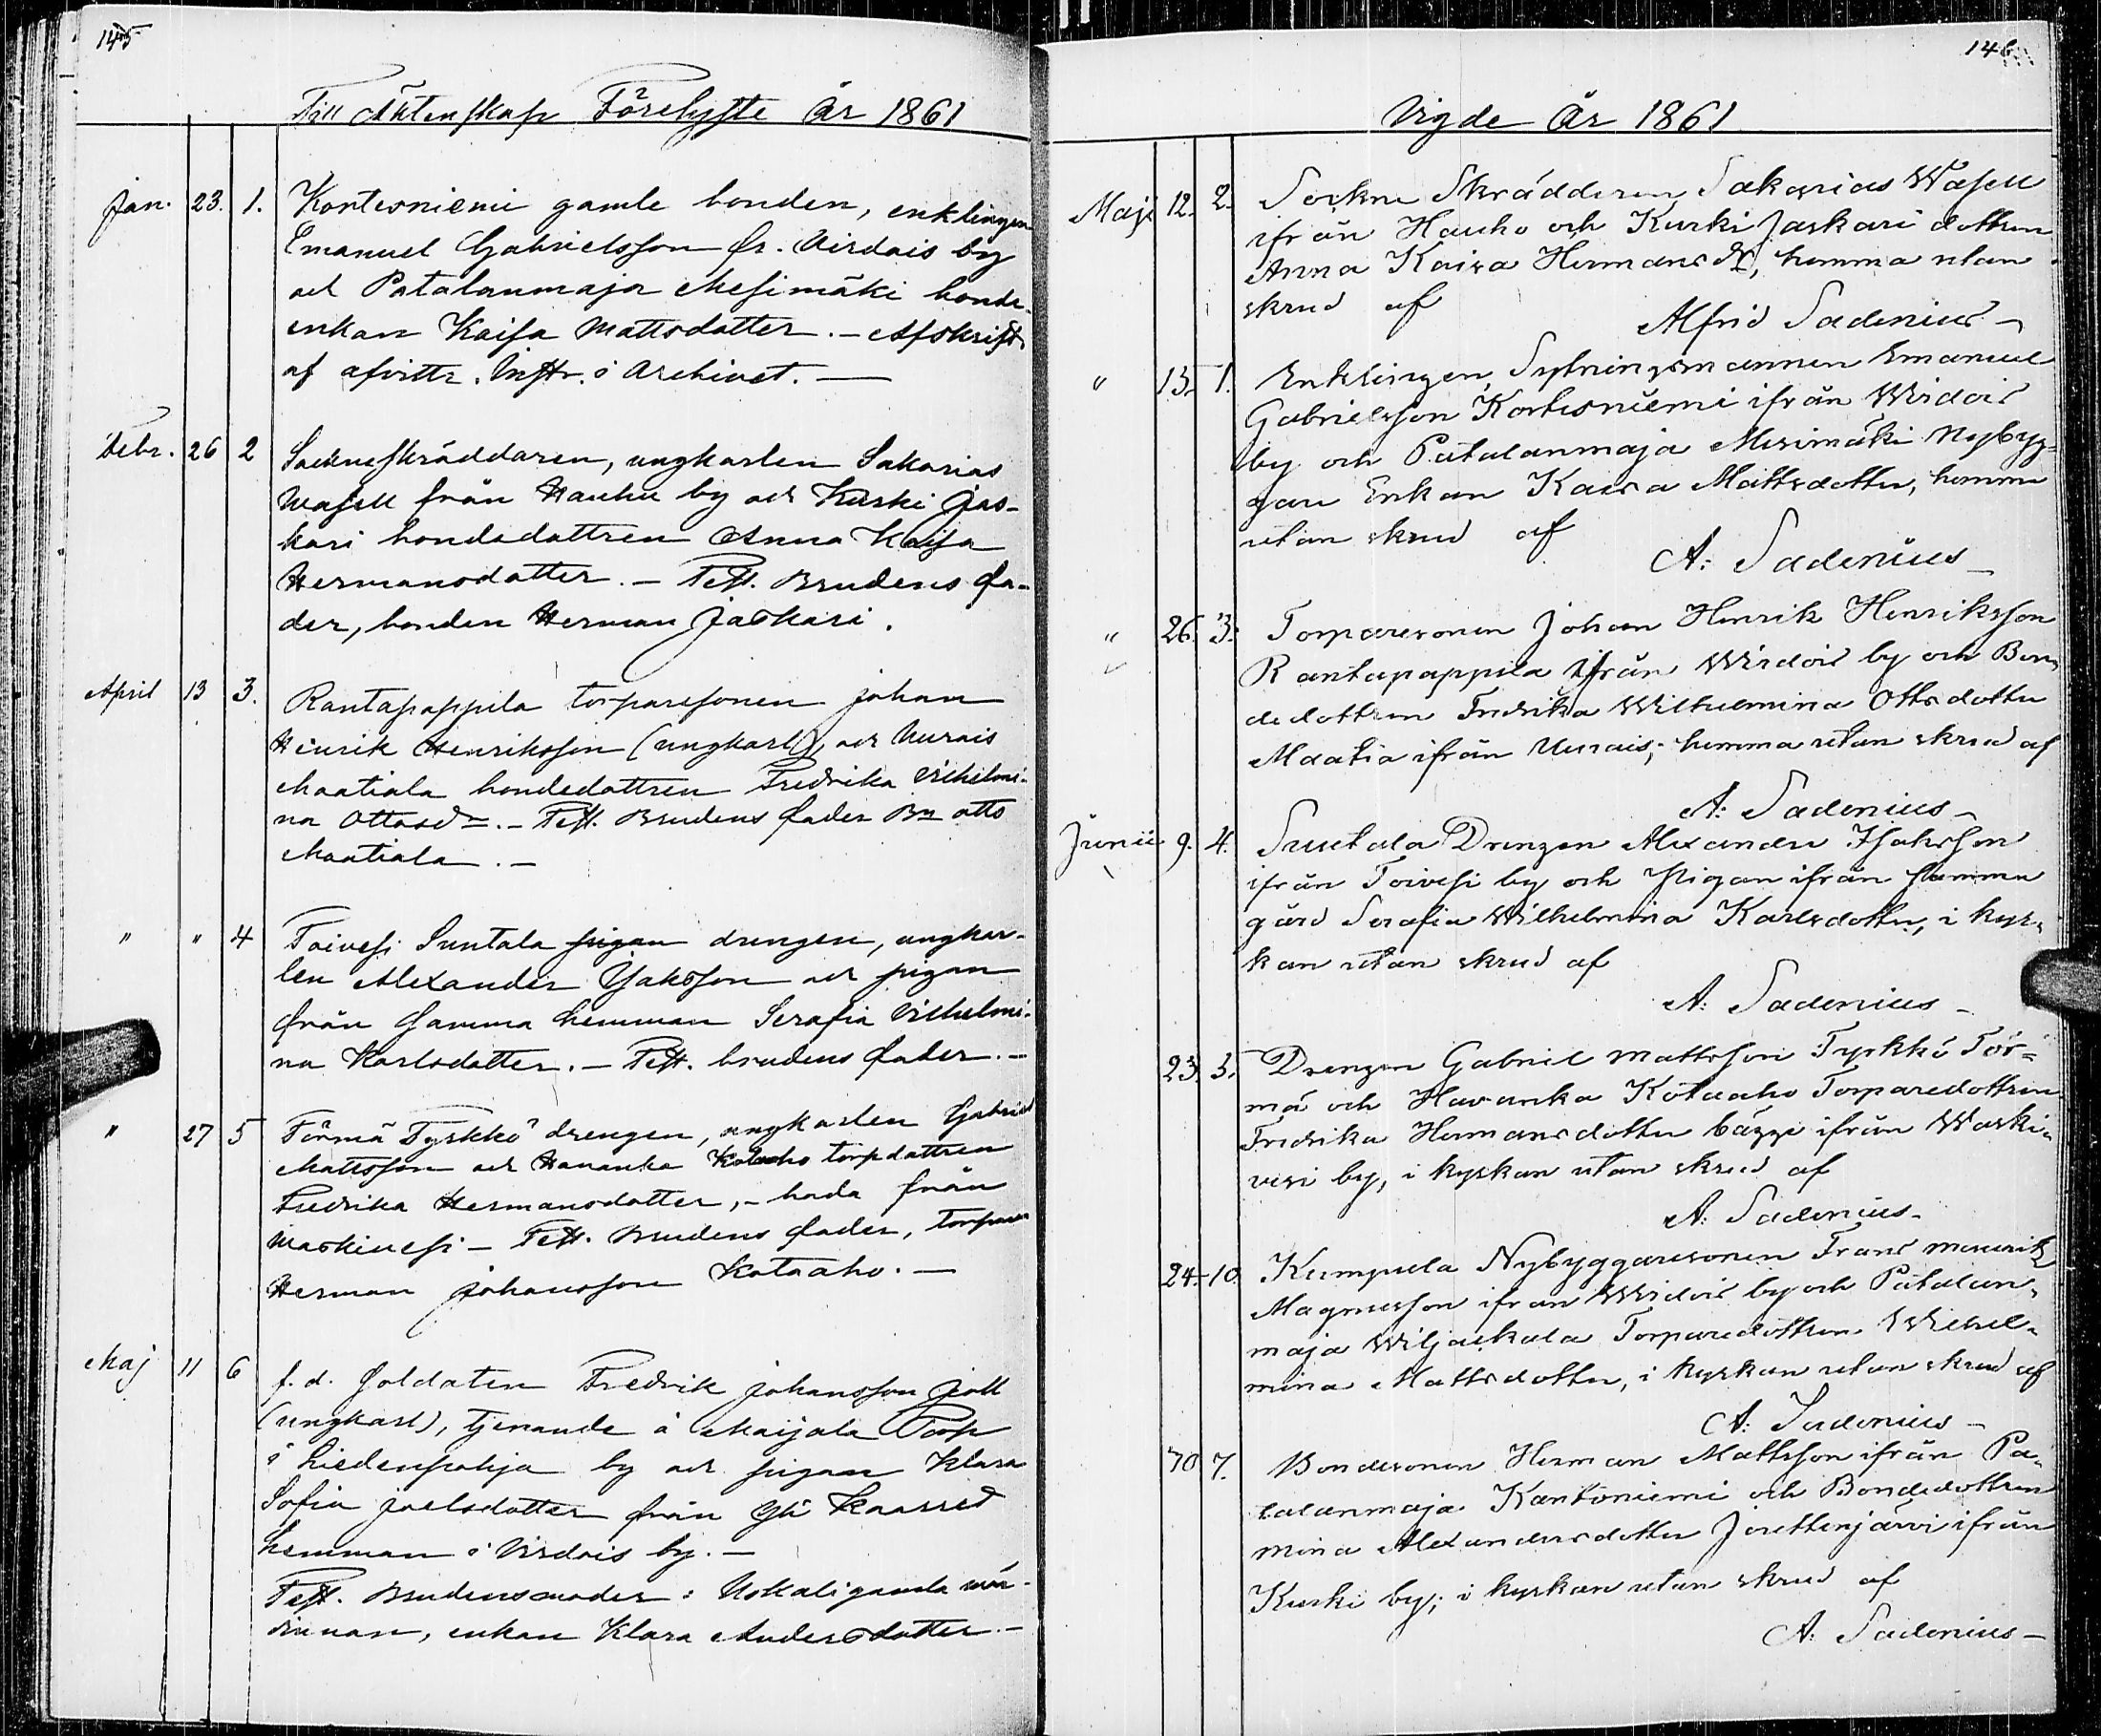 145
Till Äktenskap Förelyste År 1861
Jan. 23. 1. Kortesniemi gamle bonden, enklingen
Emanuel Gabrielsson fr. Virdois by
och Patalanmaja Mesimäki bonde-
enkan Kaisa Mattsdotter. – Afskrift
af afvittr. Instr. i Archivet. —
Febr. 26 2 Sockneskräddaren, ungkarlen Sakarias
Wasell från Hauhu by och Kurki Jas-
kari bondedottren Anna Kaisa
Hermansdotter. – Test. Brudens fa-
der, bonden Herman Jaskari.
April 13 3. Rantapappila torparesonen Johan
Henrik Henriksson (ungkarl), och Uurais
Maatiala bondedottren Fredrika Vilhelmi-
na Ottosdr. – Test. Brudens fader Bn Otto
Maatiala. –
" " 4 Toivesi Suntala pigan drengen, ungkar-
len Alexander Isaksson och pigan
från samma hemman Serafia Vilhelmi-
na Karlsdotter. – Test. brudens fader. –
" 27 5 Törmä Tyrkkö drengen, ungkarlen Gabriel
Mattsson och Havanka Kotaaho torpdottren
Fredrika Hermansdotter, – båda från
Waskivesi – Test. Brudens fader, torparen
Herman Johansson Kotaaho. —
Maj 11 6 f. d. Soldaten Fredrik Johansson Joll
(ungkarl), tjenande å Maijala Torp
i Liedenpohja by och pigan Klara
Sofia Joelsdotter från Yli Kaarred
hemman i Virdois by. –
Test. Brudens moder: Uskali gamla vär-
dinnan, enkan Klara Andersdotter. –
146
Vigde År 1861
Maji 12. 2. Sockne Skräddaren Sakarias Wasell
ifrån Hauho och Kurki Jaskari dottren
Anna Kaisa Hermansdr, hemma utan
skrud af
Alfrid Sadenius –
" 13. 1. Enklingen, Sytningsmannen Emanuel
Gabrielsson Kortesniemi ifrån Wirdois
by och Patalanmaja Mesimäki Nybyg=
gare Enkan Kaisa Mattsdotter, hemma
utan skrud af
A: Sadenius –
" 26. 3. Torparesonen Johan Henrik Henriksson
Rantapappila ifrån Wirdois by och Bon=
dedottren Fredrika Wilhelmina Ottsdotter
Maatia ifrån Uurais; hemma utan skrud af
A: Sadenius –
Junii 9. 4. Suutala Drengen Alexander Isaksson
ifrån Toivesi by och Pigan ifrån samma
gård Serafia Wilhelmina Karlsdotter, i kyr=
kan utan skrud af
A: Sadenius –
23. 5. Drengen Gabriel Mattsson Tyrkkö Tör=
mä och Havanka Kotaaho Torparedottren
Fredrika Hermansdotter bägge ifrån Waski=
vesi by, i kyrkan utan skrud af
A: Sadenius –
24. 10. Kumpula Nybyggaresonen Frans
Magnusson ifrån Wirdois by och Patalan=
maja Wiljaskala Torparedottren Wilhel=
mina Mattsdotter, i kyrkan utan skrud af
A: Sadenius –
30 7. Bondesonen Herman Mattsson ifrån Pa=
talanmaja Kantoniemi och Bondedottren
Mina Alexandersdotter Jorettenjärvi ifrån
Kurki by; i kyrkan utan skrud af
A: Sadenius –